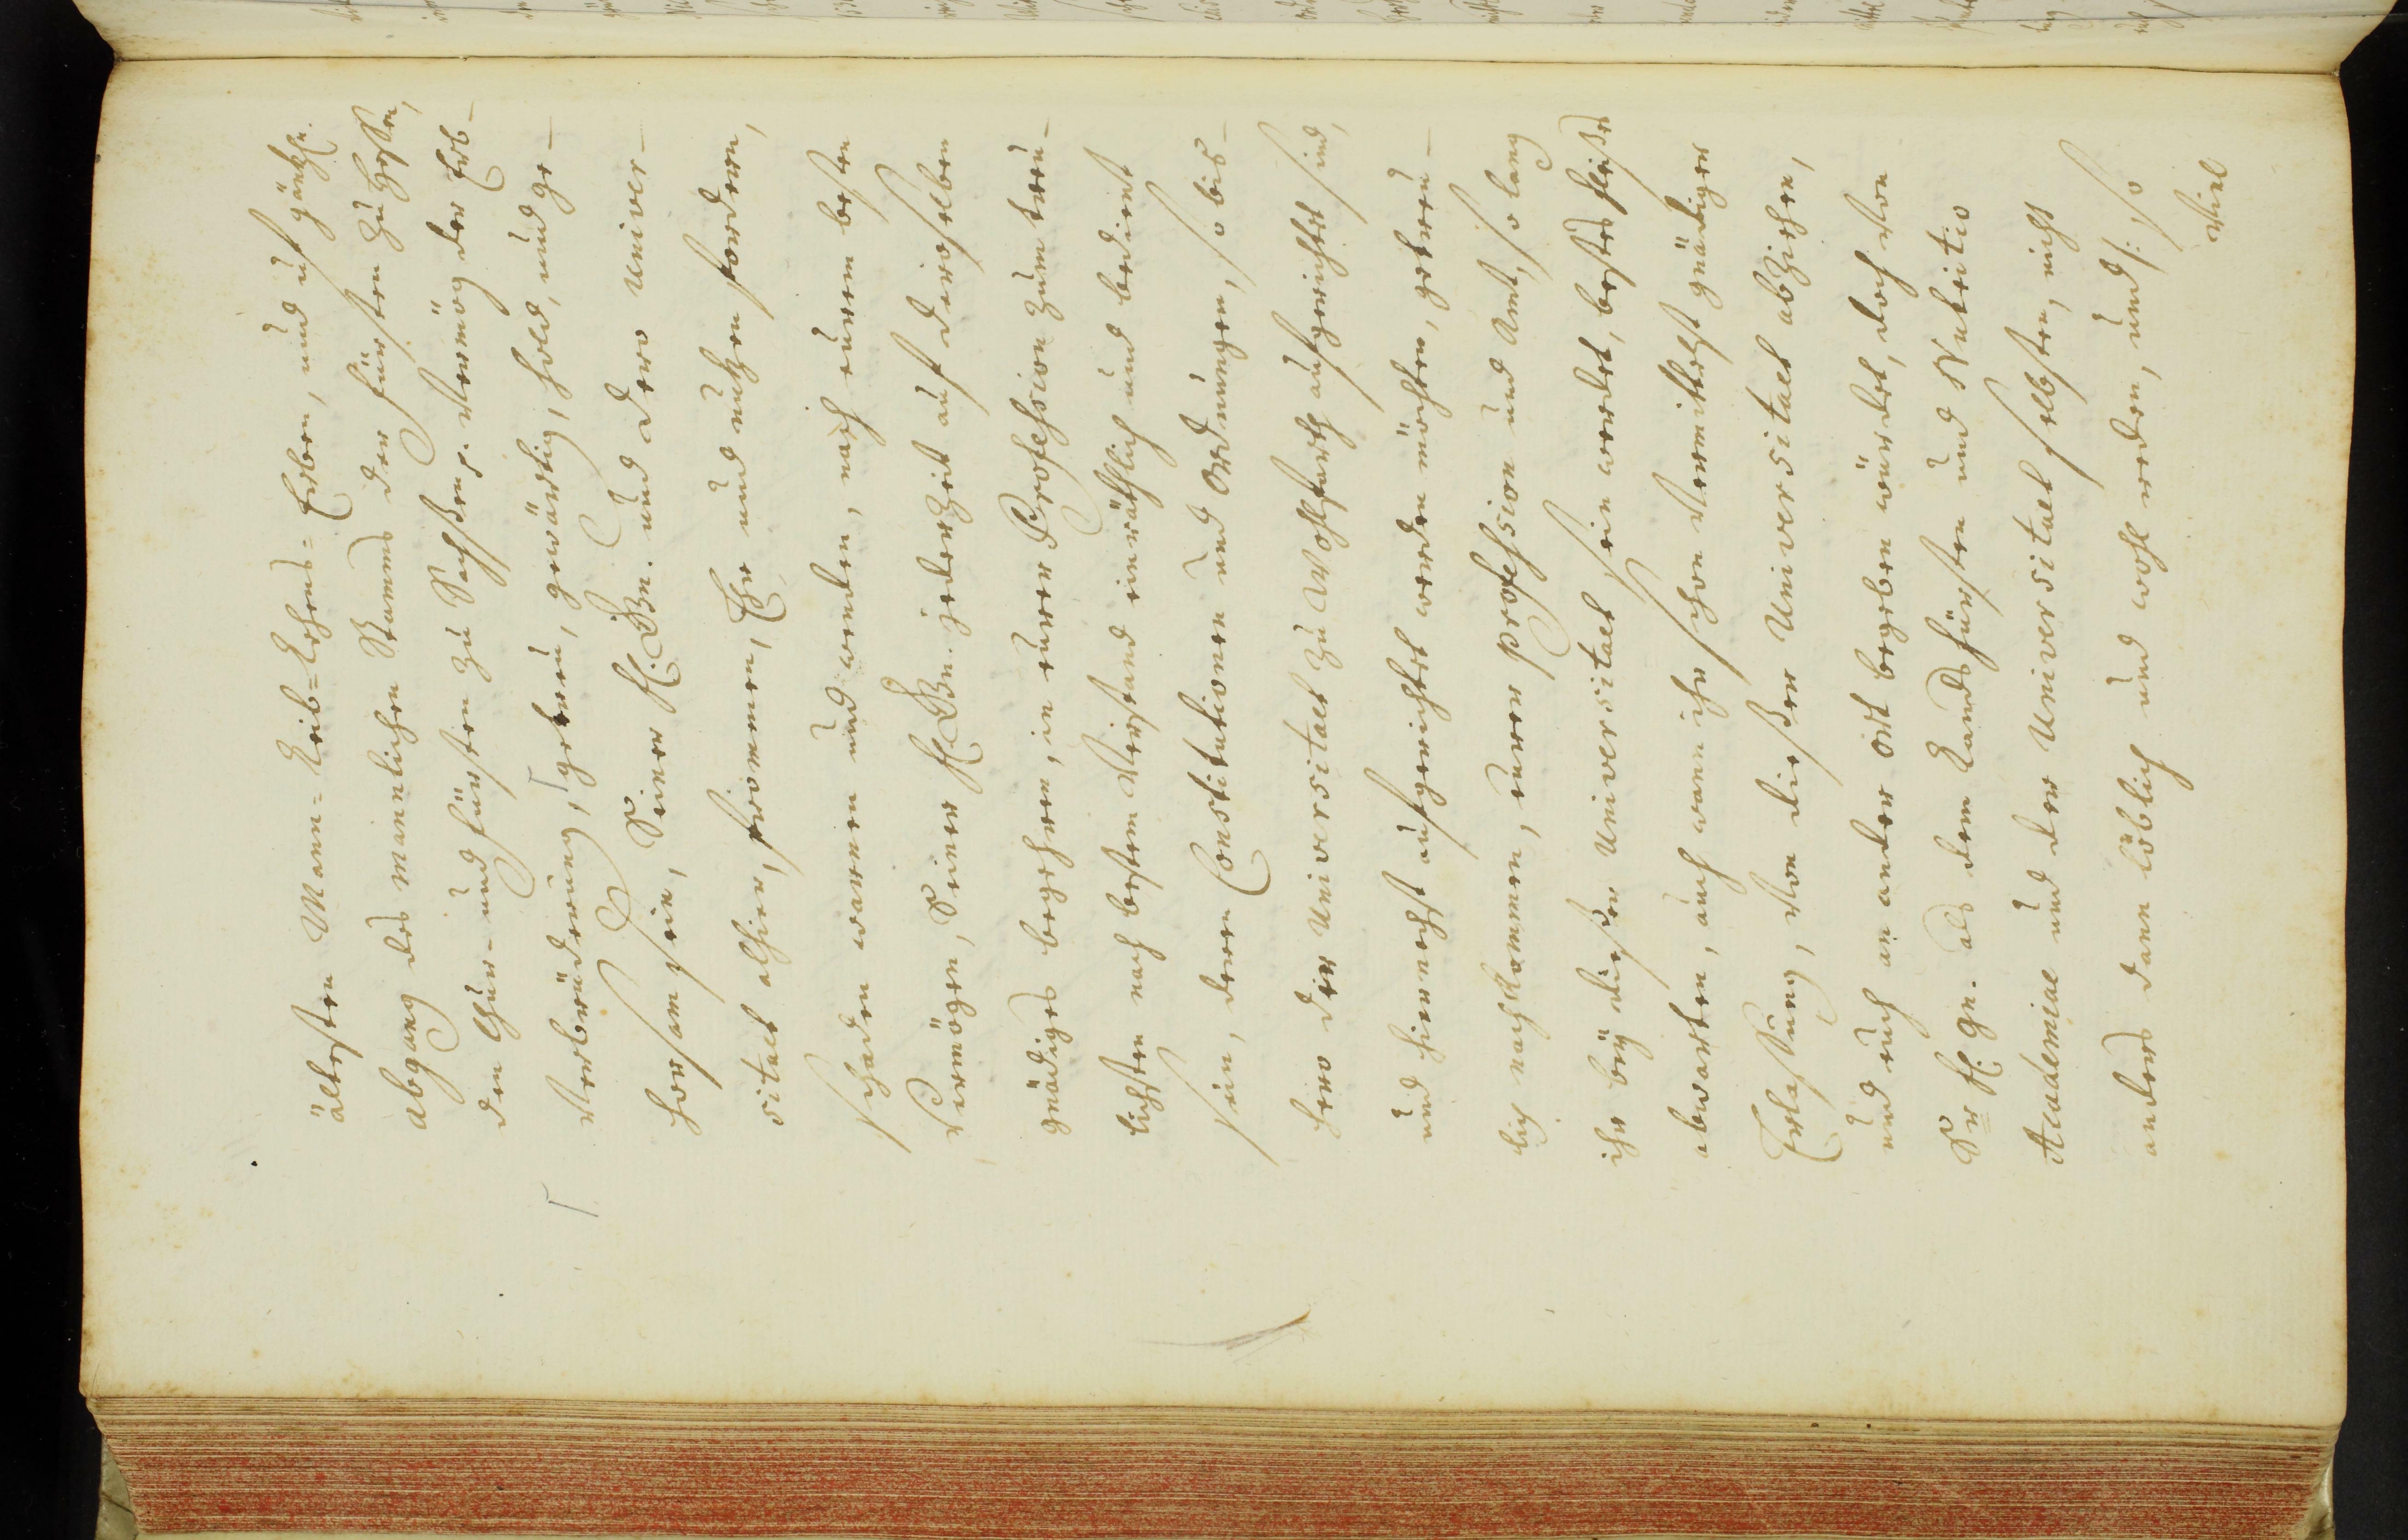 ältesten Mann-Leib-Lehens-Erben, und uf gäntzl.
abgang des Manlichen Stamms der Fürsten zu Hessen,
den Chur- und Fürsten zu Sachßen p. vermög der Erb-
verbrüderung, getreu, gewärtig, hold, und ge-
horsam sein, Seiner fl. Gn. und dero Univer-
sitaet alhier, frommen, Ehr und nutzen fordern,
schaden warnen und wenden, nach eurem besten
vermögen, Seiner fl. Gn. jederzeit auf deroselben
gnädiges begehren, in eurer Profession zum treu-
lichsten nach bestem Verstand einräthlich und bedient
sein, deren Constitutionen und Ordnungen, so bis-
hero der Universitaet zu Wohlfarth aufgerichtet sind,
und hiernechst aufgerichtet werden möchten, getreu-
lich nachkommen, eurer profession und Amt, so lang
ihr bey dießer Universitaet sein werdet, bestes fleißes
abwarten, auch wann ihr schon vermittelst gnädiger
Erlaßung, von dießer Universitaet abziehen,
und euch an ander ort begeben würdet, doch von
Sr. fl. gn. als dem Landsfürsten und Nutritio
Academiae und der Universitaet selbsten, nichts
anders dann löblich und wohl reden, und /: so
viel